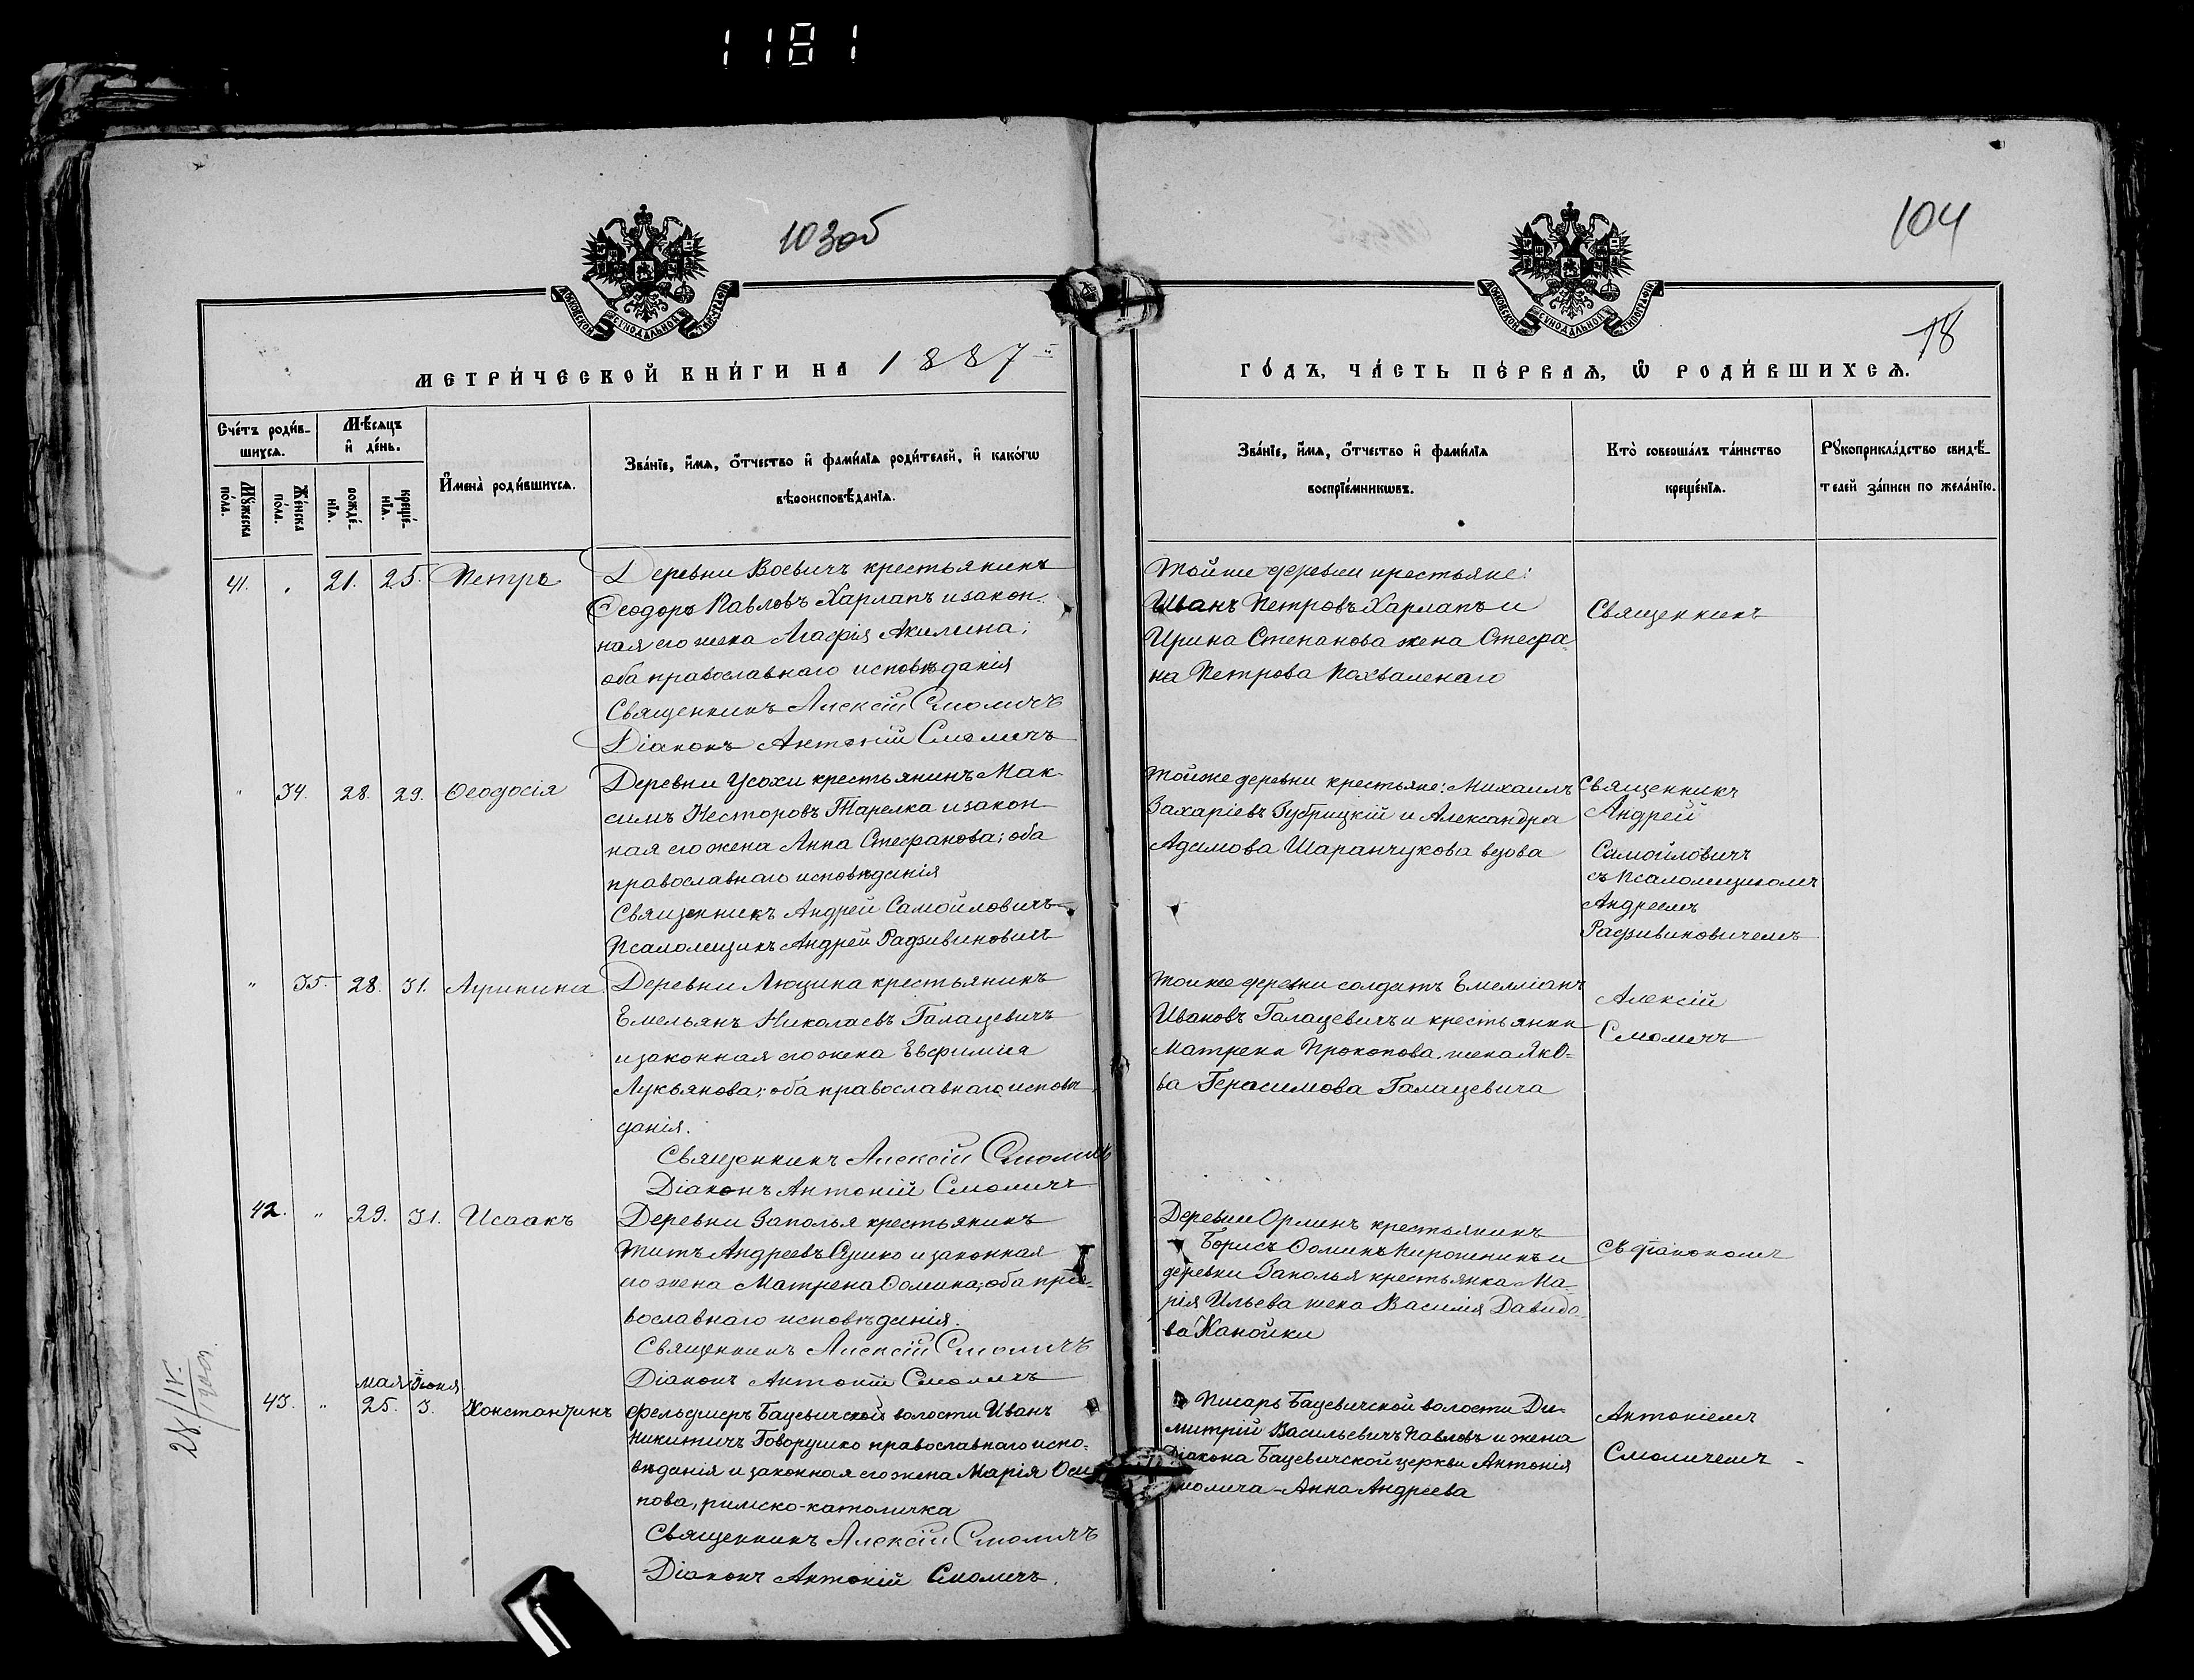 1181
103об
104
МОСКОВСКОЙ СѴНОДАЛЬНОЙ ТИПОГРАФІИ
МОСКОВСКОЙ СѴНОДАЛЬНОЙ ТИПОГРАФІИ
18
МЕТРИ́ЧЕСКОЙ КНИ́ГИ НА 1887
ГО́ДЪ, ЧА́СТЬ ПЕ́РВАѦ, Ѿ РОДИ́ВШИХСѦ.
Сче́тъ роди́в-
шихсѧ.
Мѣ́сѧцъ
и҆ де́нь.
Му́жеска
по́ла.
Же́нска
по́ла.
рожде́-
нїѧ.
креще́-
нїѧ.
И҆мена̀ роди́вшихсѧ.
Зва́нїе, и҆́мѧ, ѻ҆́тчество и҆ фами́лїѧ роди́телей, и҆ како́гѡ
вѣроисповѣ́данїѧ.
Зва́нїе, и҆́мѧ, ѻ҆́тчество и҆ фами́лїѧ
воспрїе́мникѡвъ.
Кто̀ соверша́лъ та́инство
креще́нїѧ.
Рꙋкоприкла́дство свидѣ́-
телей за́писи по жела́нїю.
41. „ 21. 25. Петръ
Деревни Воевичъ крестьянинъ
Ѳеодоръ Павловъ Харлапъ и закон-
ная его жена Агафія Акилина;
оба православнаго исповѣданія
Священникъ Алексій Смоличъ
Діаконъ Антоній Смоличъ
Тойже деревни крестьяне:
Иванъ Петровъ Харлапъ и
Ирина Степанова жена Стефа-
на Петрова Похваленаго
Священникъ
„ 34. 28. 29. Ѳеодосія
Деревни Усохи крестьянинъ Мак-
симъ Несторовъ Тарелка и закон-
ная его жена Анна Стефанова; оба
православнаго исповѣданія
Священникъ Андрей Самойловичъ
Псаломщикъ Андрей Радзивиновичъ
Тойже деревни крестьяне: Михаилъ
Захаріевъ Зубрицкій и Александра
Адамова Шаранчукова вдова
Священникъ
Андрей
Самойловичъ
съ псаломщикомъ
Андреемъ
Радзивиновичемъ
„ 35. 28. 31. Акилина
Деревни Люцина крестьянинъ
Емельянъ Николаевъ Галацевичъ
и законная его жена Евфимія
Лукьянова; оба православнаго исповѣ-
данія.
Священникъ Алексій Смоличъ
Діаконъ Антоній Смоличъ
Тойже деревни солдатъ Емелліанъ
Ивановъ Галацевичъ и крестьянка
Матрена Прокопова жена Яко-
ва Герасимова Галацевича
Алексій
Смоличъ
42. „ 29. 31. Исаакъ
Деревни Заполья крестьянинъ
Титъ Андреевъ Сушко и законная
его жена Матрена Ѳомина; оба пра-
вославнаго исповѣданія.
Священникъ Алексій Смоличъ
Діаконъ Антоній Смоличъ
Деревни Орлинъ крестьянинъ
Борисъ Ѳоминъ и
деревни Заполья крестьянка Ма-
рія Ильева жена Василія Давидо-
ва Канойки
съ діакономъ
мая Іюня
43. „ 25. 3. Константинъ
Фельдшеръ Бацевичской волости Иванъ
Никитичъ Говорушко православнаго испо-
вѣданія и законная его жена Марія Оси-
пова, римско-католичка
Священникъ Алексій Смоличъ
Діаконъ Антоній Смоличъ.
Писарь Бацевичской волости Ди-
митрій Васильевичъ Павловъ и жена
Діакона Бацевичской церкви Антонія
Смолича - Анна Андреева
Антоніемъ
Смоличемъ